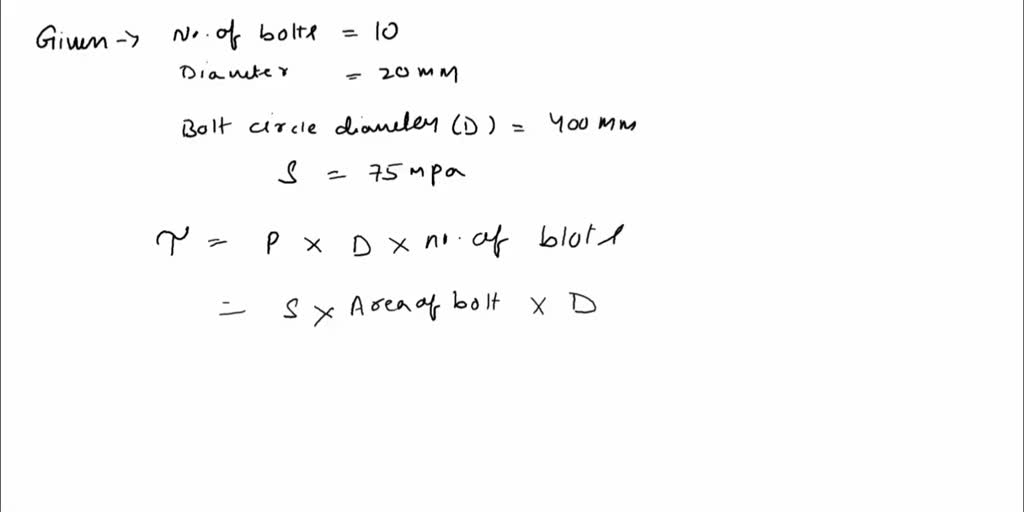 Given → No. of bolts = 10
Diameter = 20 mm
Bolt circle diameter (D) = 400 mm
S = 75 mpa
T = P × D × no. of blots
= S × Area of bolt × D